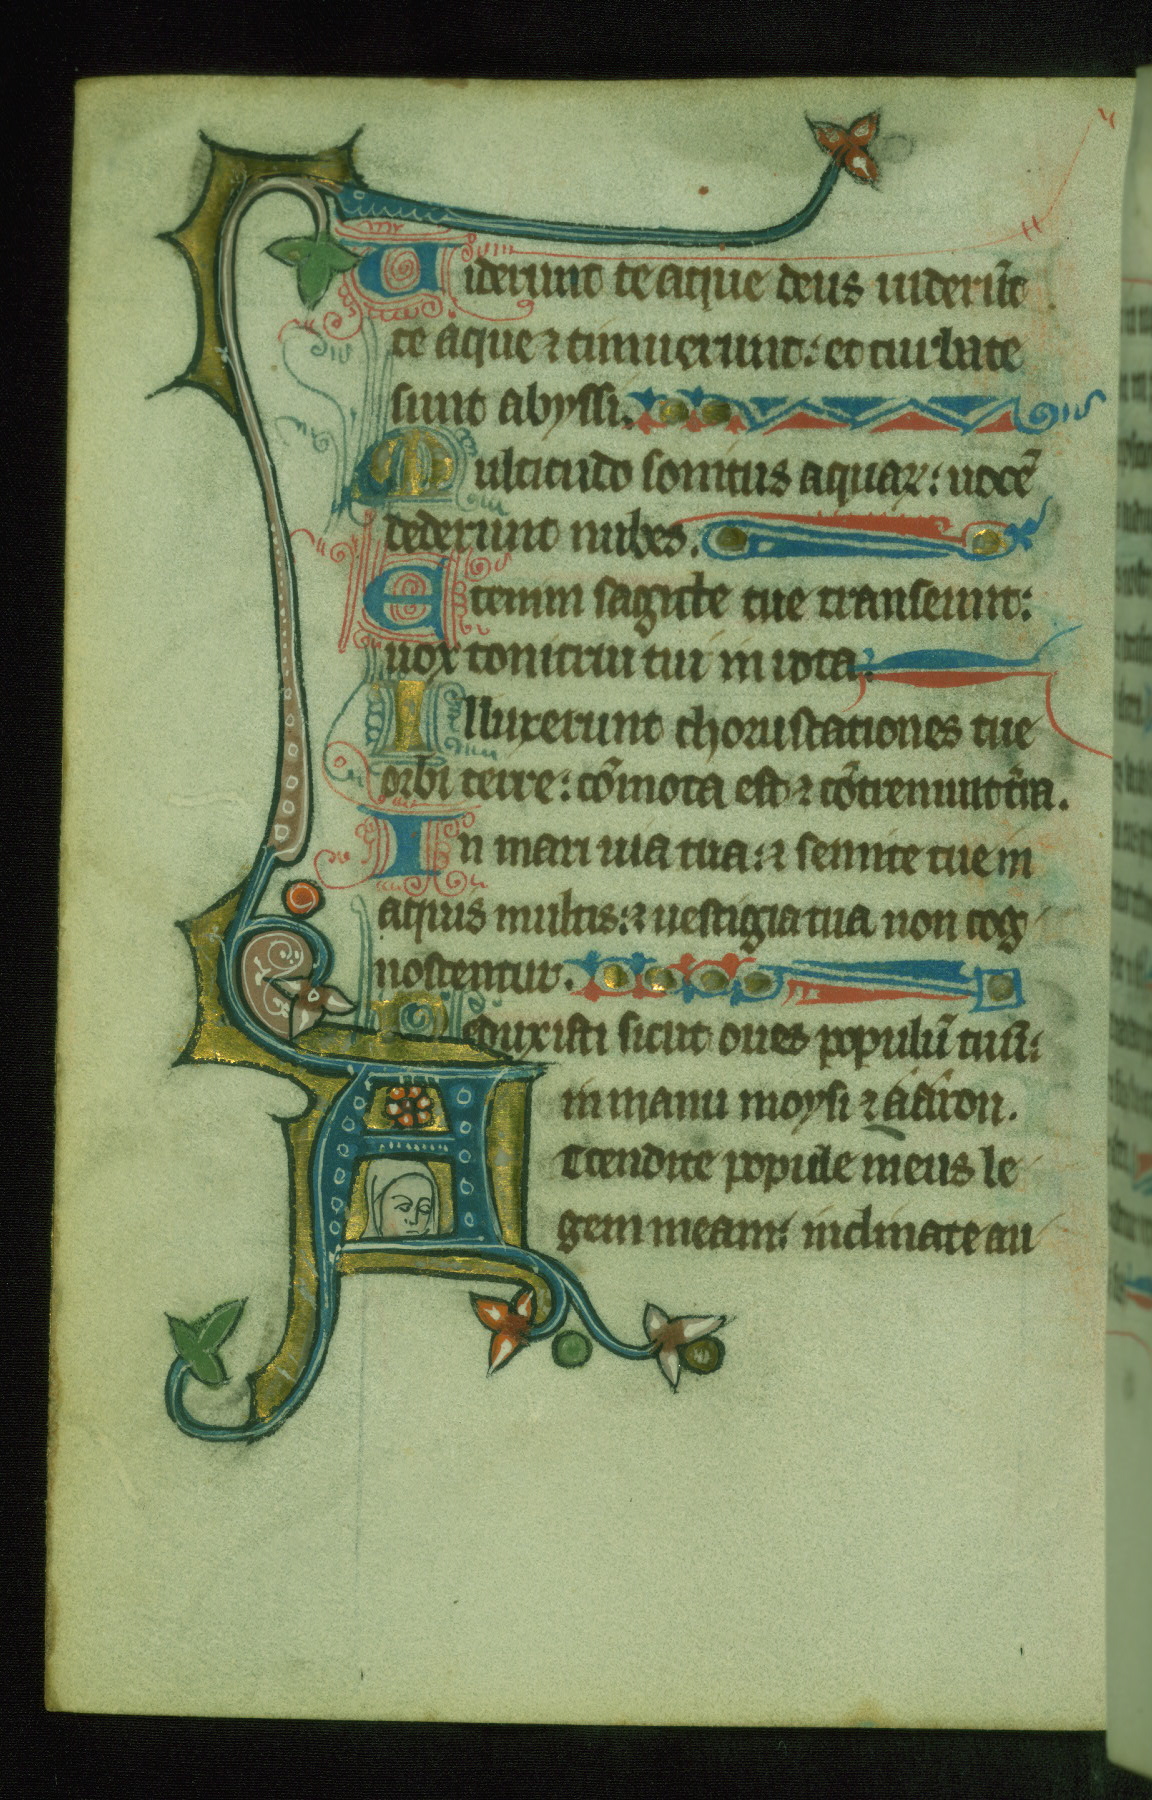 Uiderunt te aque deus uiderũt
te aque ⁊ timuerunt: et turbate
sunt abyssi.
Multitudo sonitus aquaꝝ: uocẽ
dederunt nubes.
Etenim sagitte tue transeunt:
uox tonitrui tui in rota.
Illuxerunt choruscationes tue
orbi terre: cõmota est ⁊ cõtremuit t̃ra.
In mari uia tua: ⁊ semite tue in
aquis multis: ⁊ uestigia tua non cog
noscentur.
Deduxisti sicut oues populũ tuũ:
in manu moysi ⁊ aaron.
Attendite popule meus le
gem meam: inclinate au